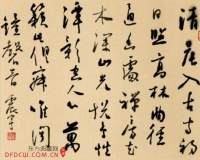 清晨入古寺初
日照高林曲徑
通幽處禪房花
木深山光悅鳥性
潭影空人心萬
籟此俱寂惟聞
鐘磬音
DFDCW.COM.CN